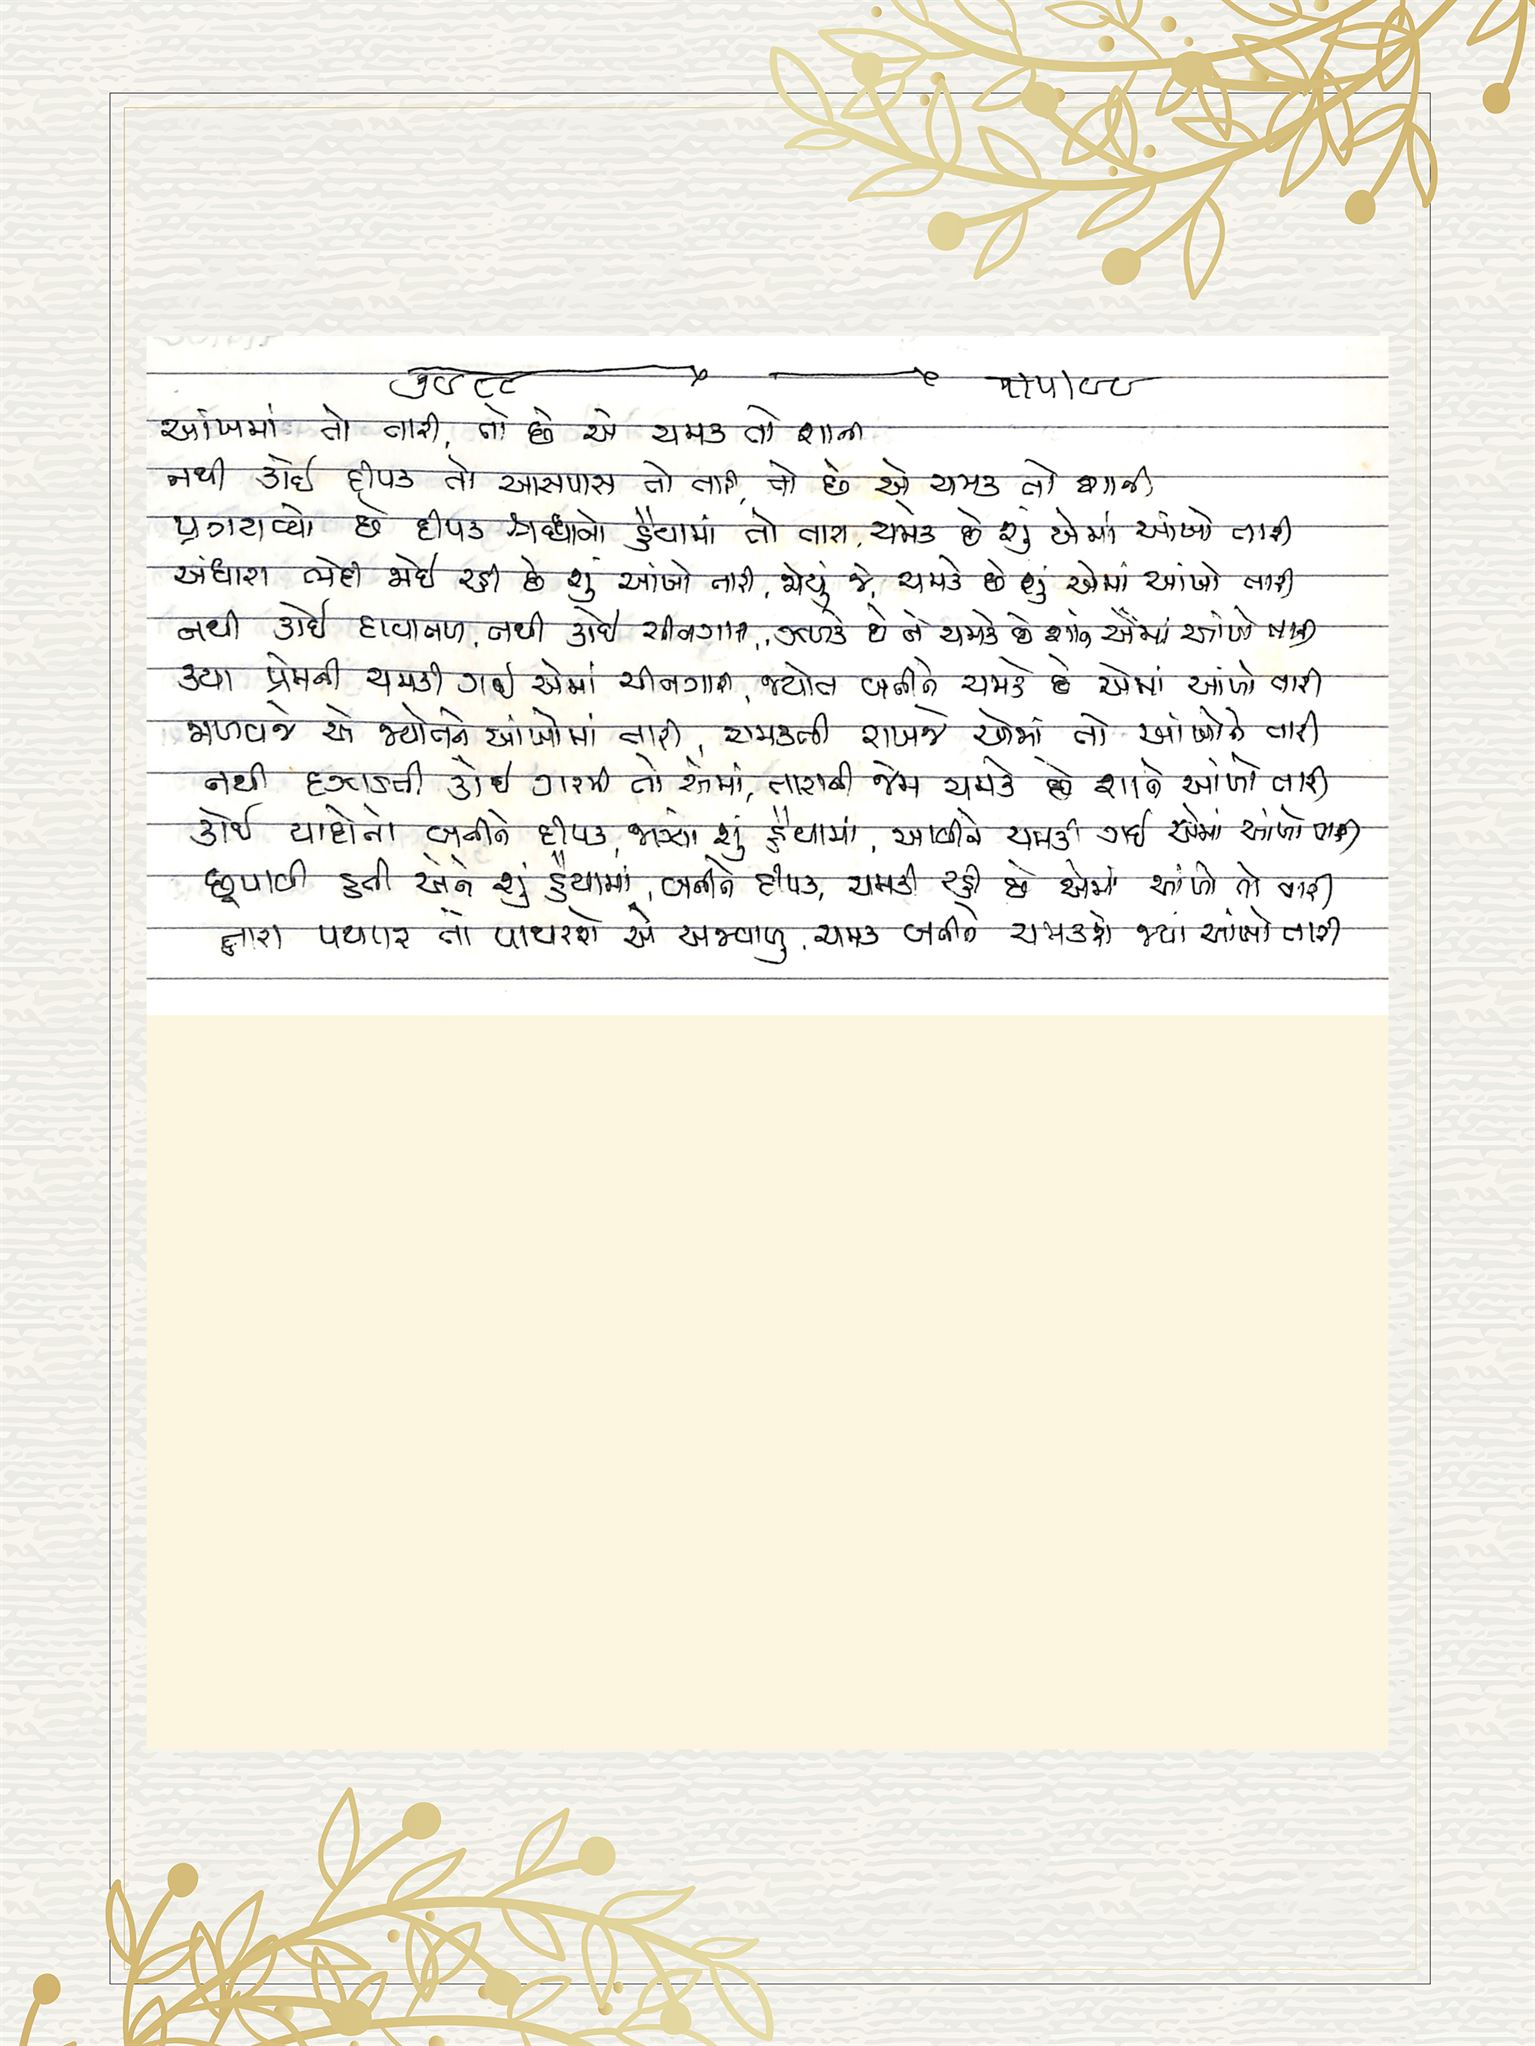 ૨/૫/૮૮
આંખમાં તો તારી, તો છે એ ચમક તો શાની
નથી કોઈ દીપક તો આસપાસ તો તારી, તો છે એ ચમક તો શાની
પ્રગટાવ્યો છે દીપક શ્રદ્ધાનો હૈયામાં તો તારા, ચમકે છે શું એમાં આંખો તારી
અંધારા ભેદી જોઈ રહી છે શું આંખો તારી, જોયું જે, ચમકે છે શું એમાં આંખો તારી
નથી કોઈ દાવાનળ, નથી કોઈ ચીનગારી, છે ને ચમકે છે શાને એમાં આંખો તારી
કયા પ્રેમની ચમકી ગઈ એમાં ચીનગારી, જ્યોત બનીને ચમકે છે એમાં આંખો તારી
જાળવજે એ જ્યોતને આંખોમાં તારી, ચમકતી રાખજે એમાં તો આંખોને તારી
નથી દઝાડતી કોઈ ગરમી તો એમાં, તારાની જેમ ચમકે છે શાને આંખો તારી
કોઈ યાદોનો બનીને દીપક, જાગ્યા શું હૈયામાં, આવીને ચમકી ગઈ એમાં આંખો તારી
છૂપાવી હતી એને શું હૈયામાં, બનીને દીપક, ચમકી રહી છે એમાં આંખો તો તારી
તારા પથપર તો પાથરશે એ અજવાળું, ચમક બનીને ચમકશે જ્યાં આંખો તારી